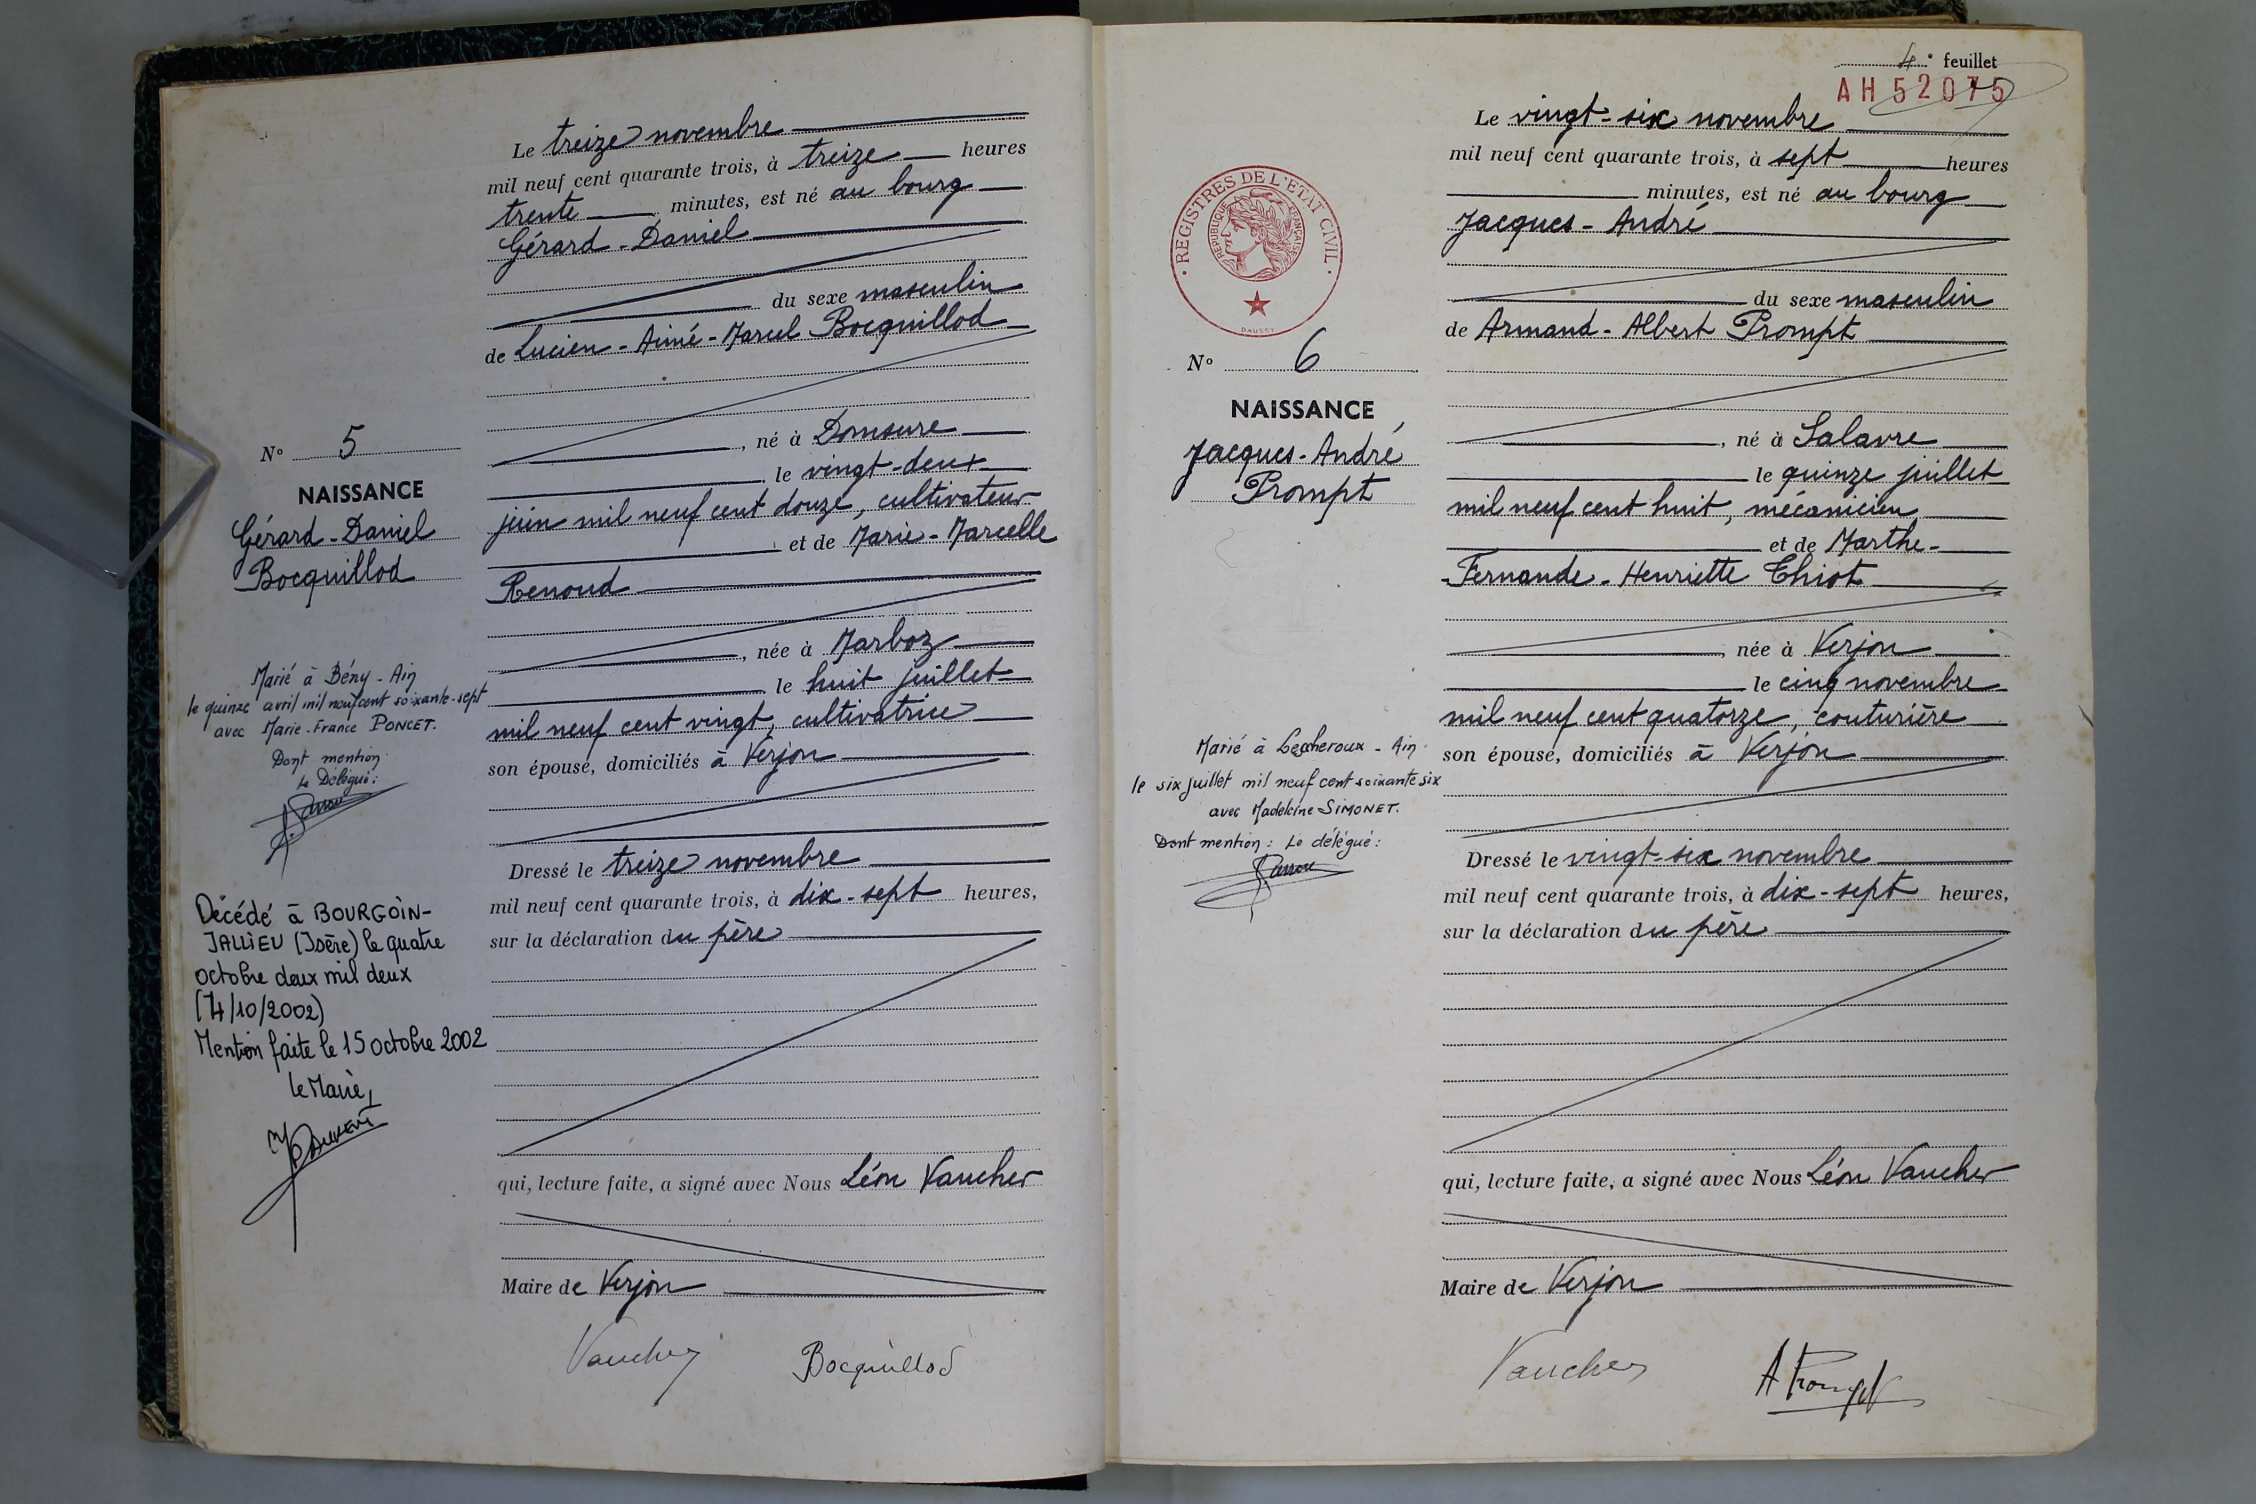 Le treize novembre
mil neuf cent quarante trois, à treize heures
trente minutes, est né au bourg
Gérard-Daniel
du sexe masculin
de Lucien-Aimé-Marcel Bocquillod
, né à Domsure
le vingt-deux
juin mil neuf cent douze, cultivateur
et de Marie-Marcelle
Renoud
, née à Marboz
le huit juillet
mil neuf cent vingt, cultivatrice
son épouse, domiciliés à Verjon
Dressé le treize novembre
mil neuf cent quarante trois, à dix-sept heures,
sur la déclaration du père
qui, lecture faite, a signé avec Nous Léon Vaucher
Maire de Verjon
Vaucher Bocquillod
No 5
NAISSANCE
Gérard-Daniel
Bocquillod
Marié à Bény-Ain
le quinze avril mil neuf cent soixante-sept
avec Marie-France PONCET.
Dont mention
Le Délégué:
Décédé à BOURGOIN-
JALLIEU (Isère) le quatre
octobre deux mil deux
(4/10/2002)
Mention faite le 15 octobre 2002
le Maire,
4e feuillet
AH 52075
REGISTRES DE L'ETAT CIVIL
REPUBLIQUE FRANÇAISE
DAUSSY
No 6
NAISSANCE
Jacques-André
Prompt
Marié à Lescheroux - Ain
le six juillet mil neuf cent soixante six
avec Madeleine SIMONET.
Dont mention: Le délégué:
Le vingt-six novembre
mil neuf cent quarante trois, à sept heures
minutes, est né au bourg
Jacques-André
du sexe masculin
de Armand-Albert Prompt
, né à Salavre
le quinze juillet
mil neuf cent huit, mécanicien
et de Marthe-
-Fernande-Henriette Thiot
, née à Verjon
le cinq novembre
mil neuf cent quatorze, couturière
son épouse, domiciliés à Verjon
Dressé le vingt-six novembre
mil neuf cent quarante trois, à dix-sept heures,
sur la déclaration du père
qui, lecture faite, a signé avec Nous Léon Vaucher
Maire de Verjon
Vaucher A Prompt